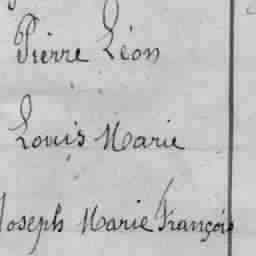 Pierre Léon
Louis Marie
Joseph Marie François